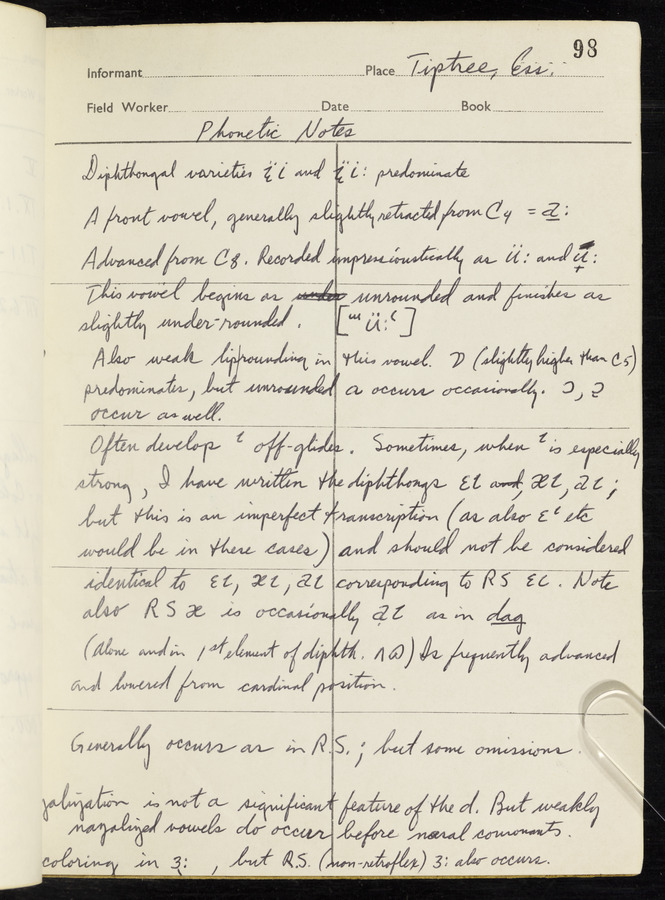 98
Informant Place Tiptree, Ess.
Field Worker Date Book
Phonetic Notes
Diphthongal varieties ɪ̈i and ɪ̈i: predominate
A front vowel, generally slightly retracted from C4 = a̲:
Advanced from C8. Recorded impressionistically as ü: and u̟:
This vowel begins as unrounded and finishes as
slightly under-rounded. [ɯ ü:ʿ]
Also weak liprounding in this vowel. ɒ (slightly higher than C5)
predominates, but unrounded ɑ occurs occasionally. ɔ, ɔ̣
occur as well.
Often develop ᶥ off-glides. Sometimes, when ᶥ is especially
strong, I have written the diphthongs ɛɩ and, æɩ, aɩ;
but this is an imperfect transcription (as also ɛᶥ etc
would be in these cases) and should not be considered
identical to ɛɩ, æɩ, aɩ corresponding to RS ɛɩ. Note
also RS æ is occasionally aɩ as in dag
(alone and in 1st element of diphth. ʌɷ) Is frequently advanced
and lowered from cardinal position.
Generally occurs as in R.S.; but some omissions.
zalization is not a significant feature of the d. But weakly
nazalized vowels do occur before nasal consonants.
coloring in ɜ:, but R.S. (non-retroflex) ɜ: also occurs.